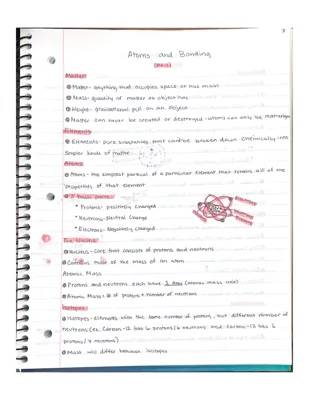 Atoms and Bonding
Matter
Matter - anything that occupies space or has mass
Mass - quantity of matter an object has
Weight - gravitational pull on an object
Matter can never be created or destroyed - atoms can only be rearranged
Elements
Elements - pure substances that cannot be broken down chemically into
simpler kinds of matter
Atoms
Atoms - the simplest particle of a particular element that retains all of the
properties of that element
3 basic parts:
Protons: positively charged
Neutrons - Neutral Charge
Electrons - Negatively charged
The Nucleus
Nucleus - core that consists of protons and neutrons
Contains most of the mass of an atom
Atomic Mass
Protons and neutrons each have 1 amu (atomic mass unit)
Atomic Mass = # of protons + number of neutrons
Isotopes
Isotopes - elements with the same number of protons, but different number of
neutrons (ex. Carbon-12 has 6 protons/6 neutrons and carbon-13 has 6
protons/7 neutrons)
Mass will differ between isotopes